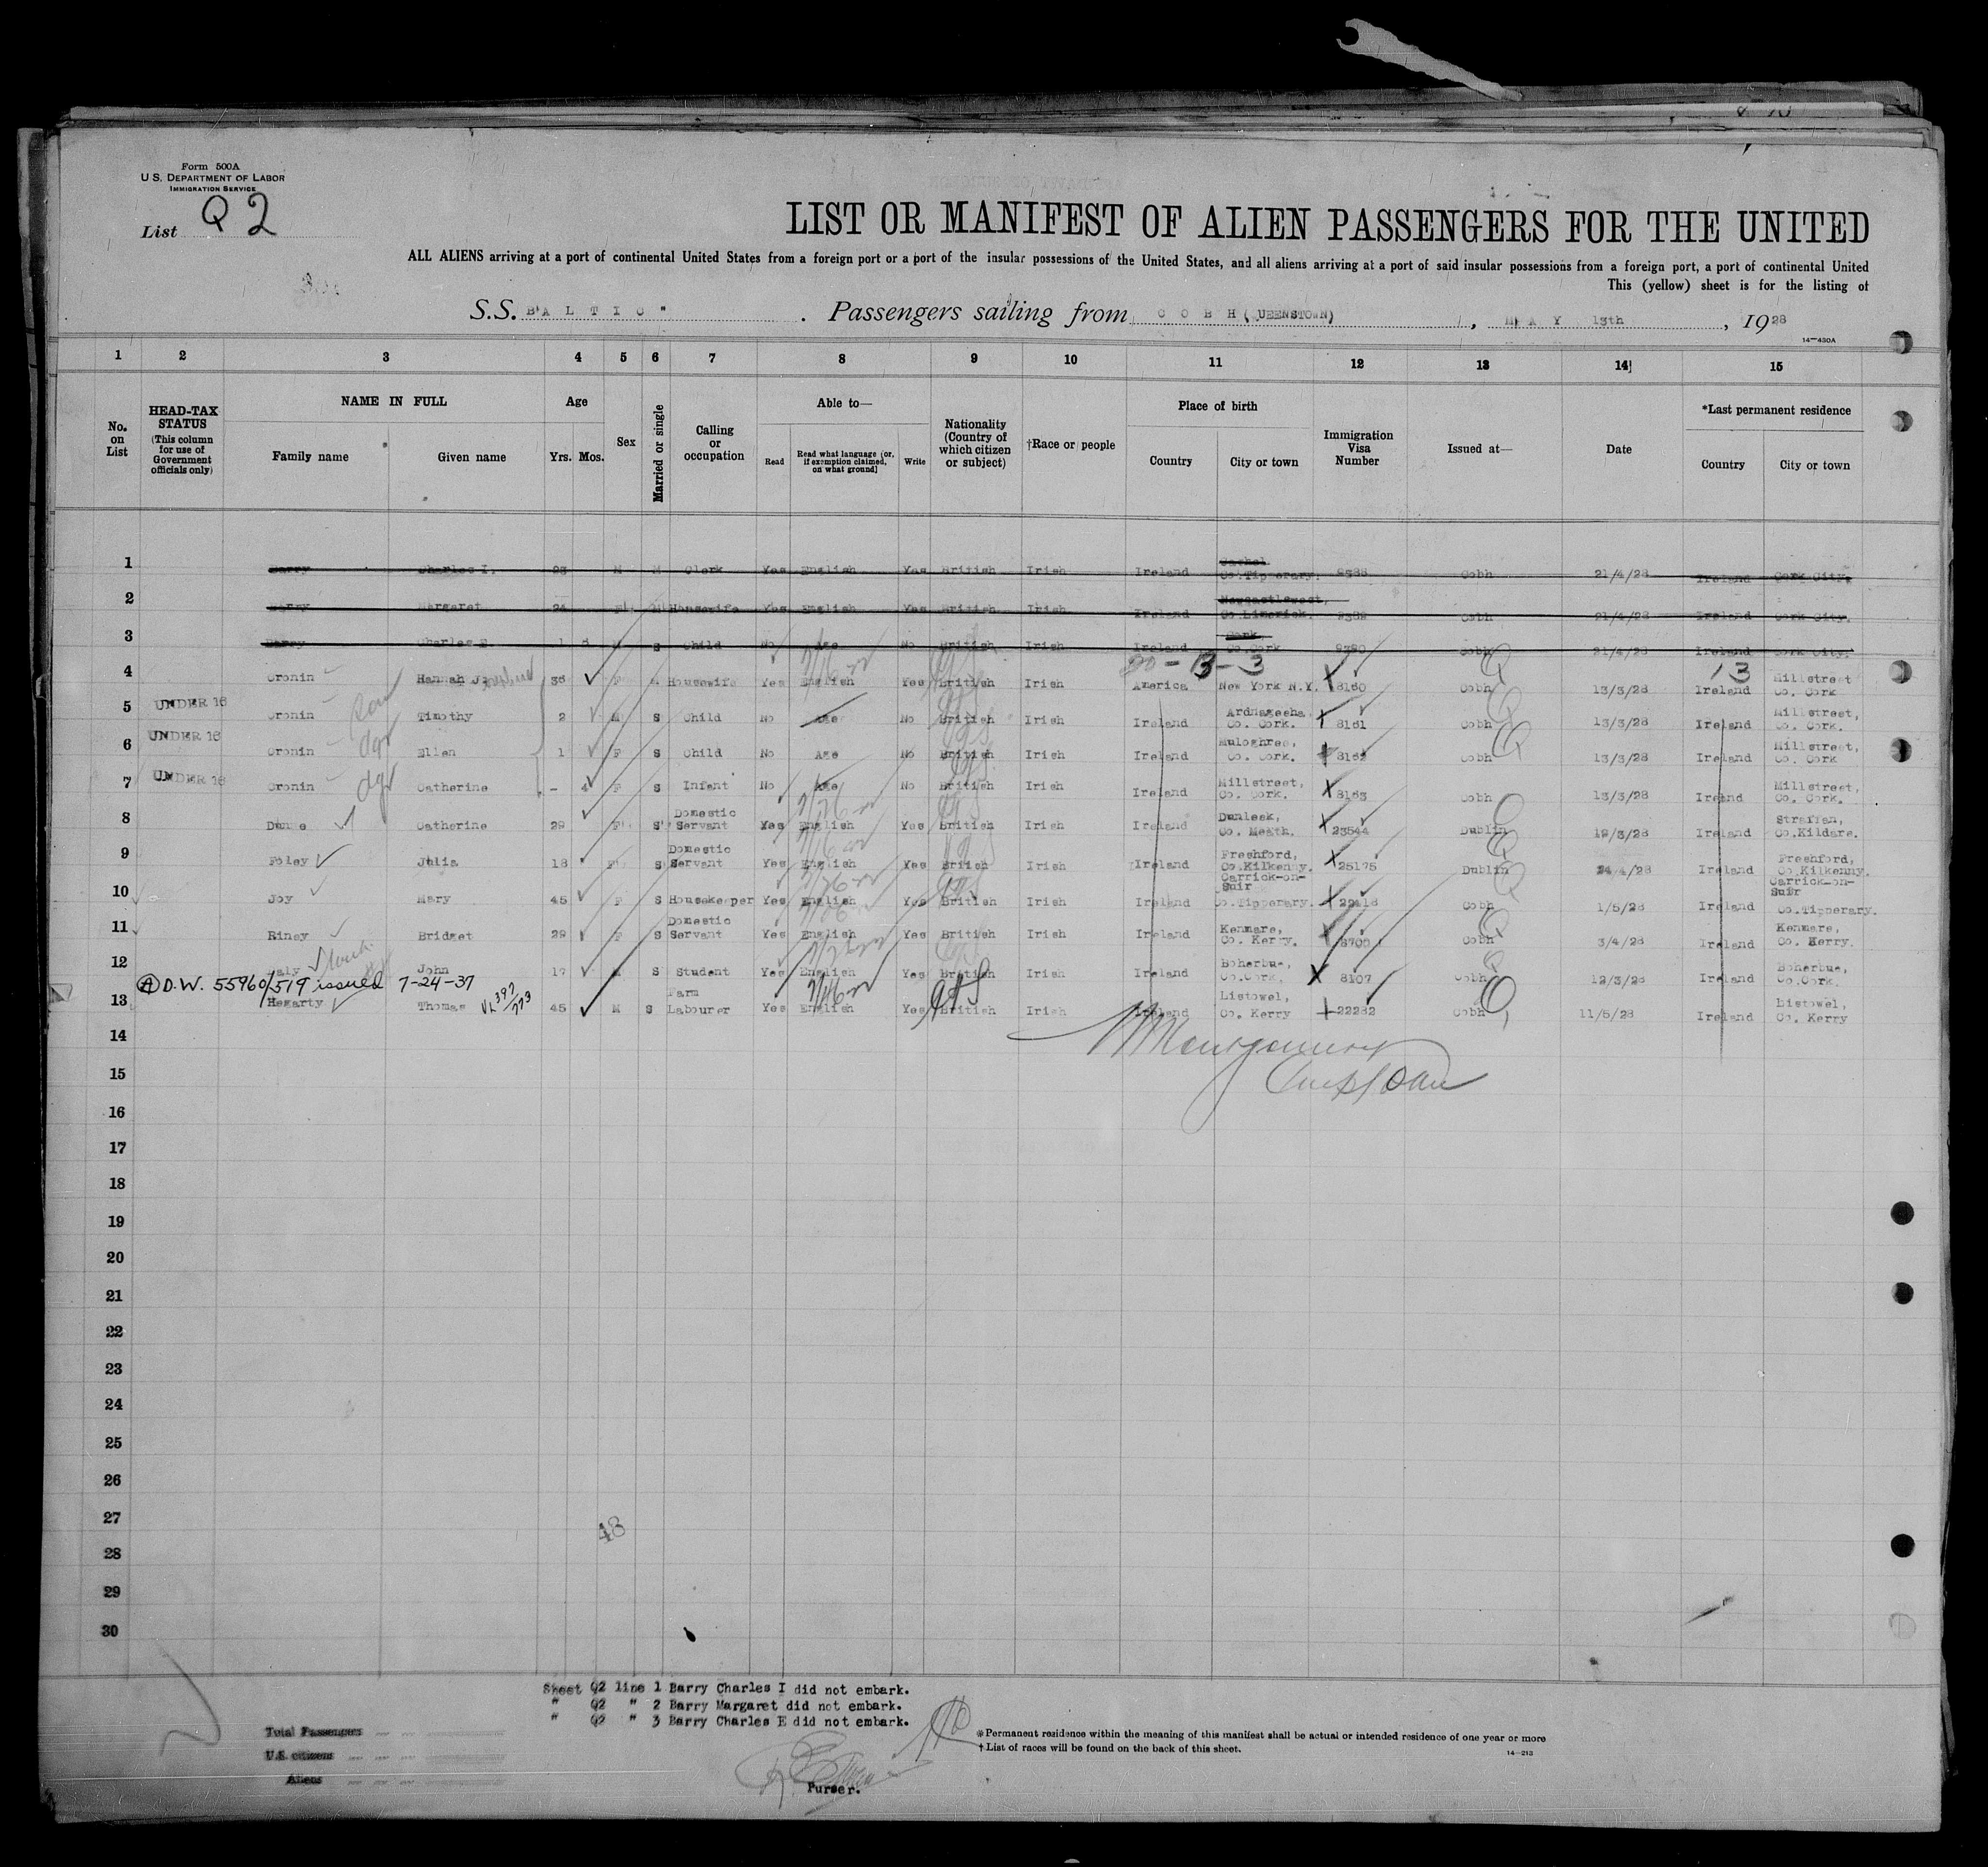 Form 500A
U. S. DEPARTMENT OF LABOR
IMMIGRATION SERVICE
List Q 2
LIST OR MANIFEST OF ALIEN PASSENGERS FOR THE UNITED
ALL ALIENS arriving at a port of continental United States from a foreign port or a port of the insular possessions of the United States, and all aliens arriving at a port of said insular possessions from a foreign port, a port of continental United
This (yellow) sheet is for the listing of
S.S. B A L T I C " . Passengers sailing from C O B H (QUEENSTOWN) , M A Y 13th , 1928
14—430A
1 2 3 4 5 6 7 8 9 10 11 12 13 14 15
No. on List
HEAD-TAX STATUS (This column for use of Government officials only)
NAME IN FULL
Family name Given name
Age
Yrs. Mos.
Sex
Married or single
Calling or occupation
Able to—
Read Read what language [or, if exemption claimed, on what ground] Write
Nationality (Country of which citizen or subject)
†Race or people
Place of birth
Country City or town
Immigration Visa Number
Issued at—
Date
*Last permanent residence
Country City or town
1 Barry Charles I. 23 M M Clerk Yes English Yes British Irish Ireland Cashel Co. Tipperary. Cobh 21/4/28 Ireland Cork City.
2 Barry Margaret 24 F M Housewife Yes English Yes British Irish Ireland Newcastlewest, Co Limerick. 9389 Cobh 21/4/28 Ireland Cork City.
3 Barry Charles E. 1 M S Child No Age No British Irish Ireland Cork Co. Cork 9390 Cobh 21/4/28 Ireland Cork City.
4 Cronin Hannah J. 36 F M Housewife Yes English Yes British Irish America New York N.Y. 8160 Cobh 13/3/28 Ireland Millstreet Co. Cork
5 UNDER 16 Cronin Timothy 2 M S Child No Age No British Irish Ireland Ardnageeha Co. Cork. 8161 Cobh 13/3/28 Ireland Millstreet, Co. Cork.
6 UNDER 16 Cronin Ellen 1 F S Child No Age No British Irish Ireland Muloghree, Co. Cork. 8162 Cobh 13/3/28 Ireland Millstreet, Co. Cork
7 UNDER 16 Cronin Catherine - 4 F S Infant No Age No British Irish Ireland Millstreet, Co. Cork. 8163 Cobh 13/3/28 Ireland Millstreet, Co. Cork.
8 Catherine 29 F S Domestic Servant Yes English Yes British Irish Ireland Dunleek, Co. Meath. 23544 Dublin 12/3/28 Ireland Straffan, Co. Kildare.
9 Foley Julia 18 F S Domestic Servant Yes English Yes British Irish Ireland Freshford, Co. Kilkenny. 25175 Dublin 24/4/28 Ireland Freshford, Co. Kilkenny.
10 Joy Mary 45 F S Housekeeper Yes English Yes British Irish Ireland Carrick-on-Suir Co. Tipperary. 22418 Cobh 1/5/28 Ireland Carrick-on-Suir Co. Tipperary.
11 Riney Bridget 29 F S Domestic Servant Yes English Yes British Irish Ireland Kenmare, Co. Kerry. 8700 Cobh 3/4/28 Ireland Kenmare, Co. Kerry.
12 Daly John 17 M S Student Yes English Yes British Irish Ireland Boherbue, Co. Cork. 8107 Cobh 12/3/28 Ireland Boherbue, Co. Cork.
Ⓐ D.W. 55960/519 issued 7-24-37
13 Hegarty Thomas VL 397/773 45 M S Farm Labourer Yes English Yes British Irish Ireland Listowel, Co. Kerry 22282 Cobh 11/5/28 Ireland Listowel, Co. Kerry
14
15
16
17
18
19
20
21
22
23
24
25
26
27
28
29
30
48
Sheet Q2 line 1 Barry Charles I did not embark.
" Q2 " 2 Barry Margaret did not embark.
" Q2 " 3 Barry Charles E did not embark.
Total Passengers
U.S. citizens
Aliens
Purser.
*Permanent residence within the meaning of this manifest shall be actual or intended residence of one year or more
†List of races will be found on the back of this sheet.
14—213